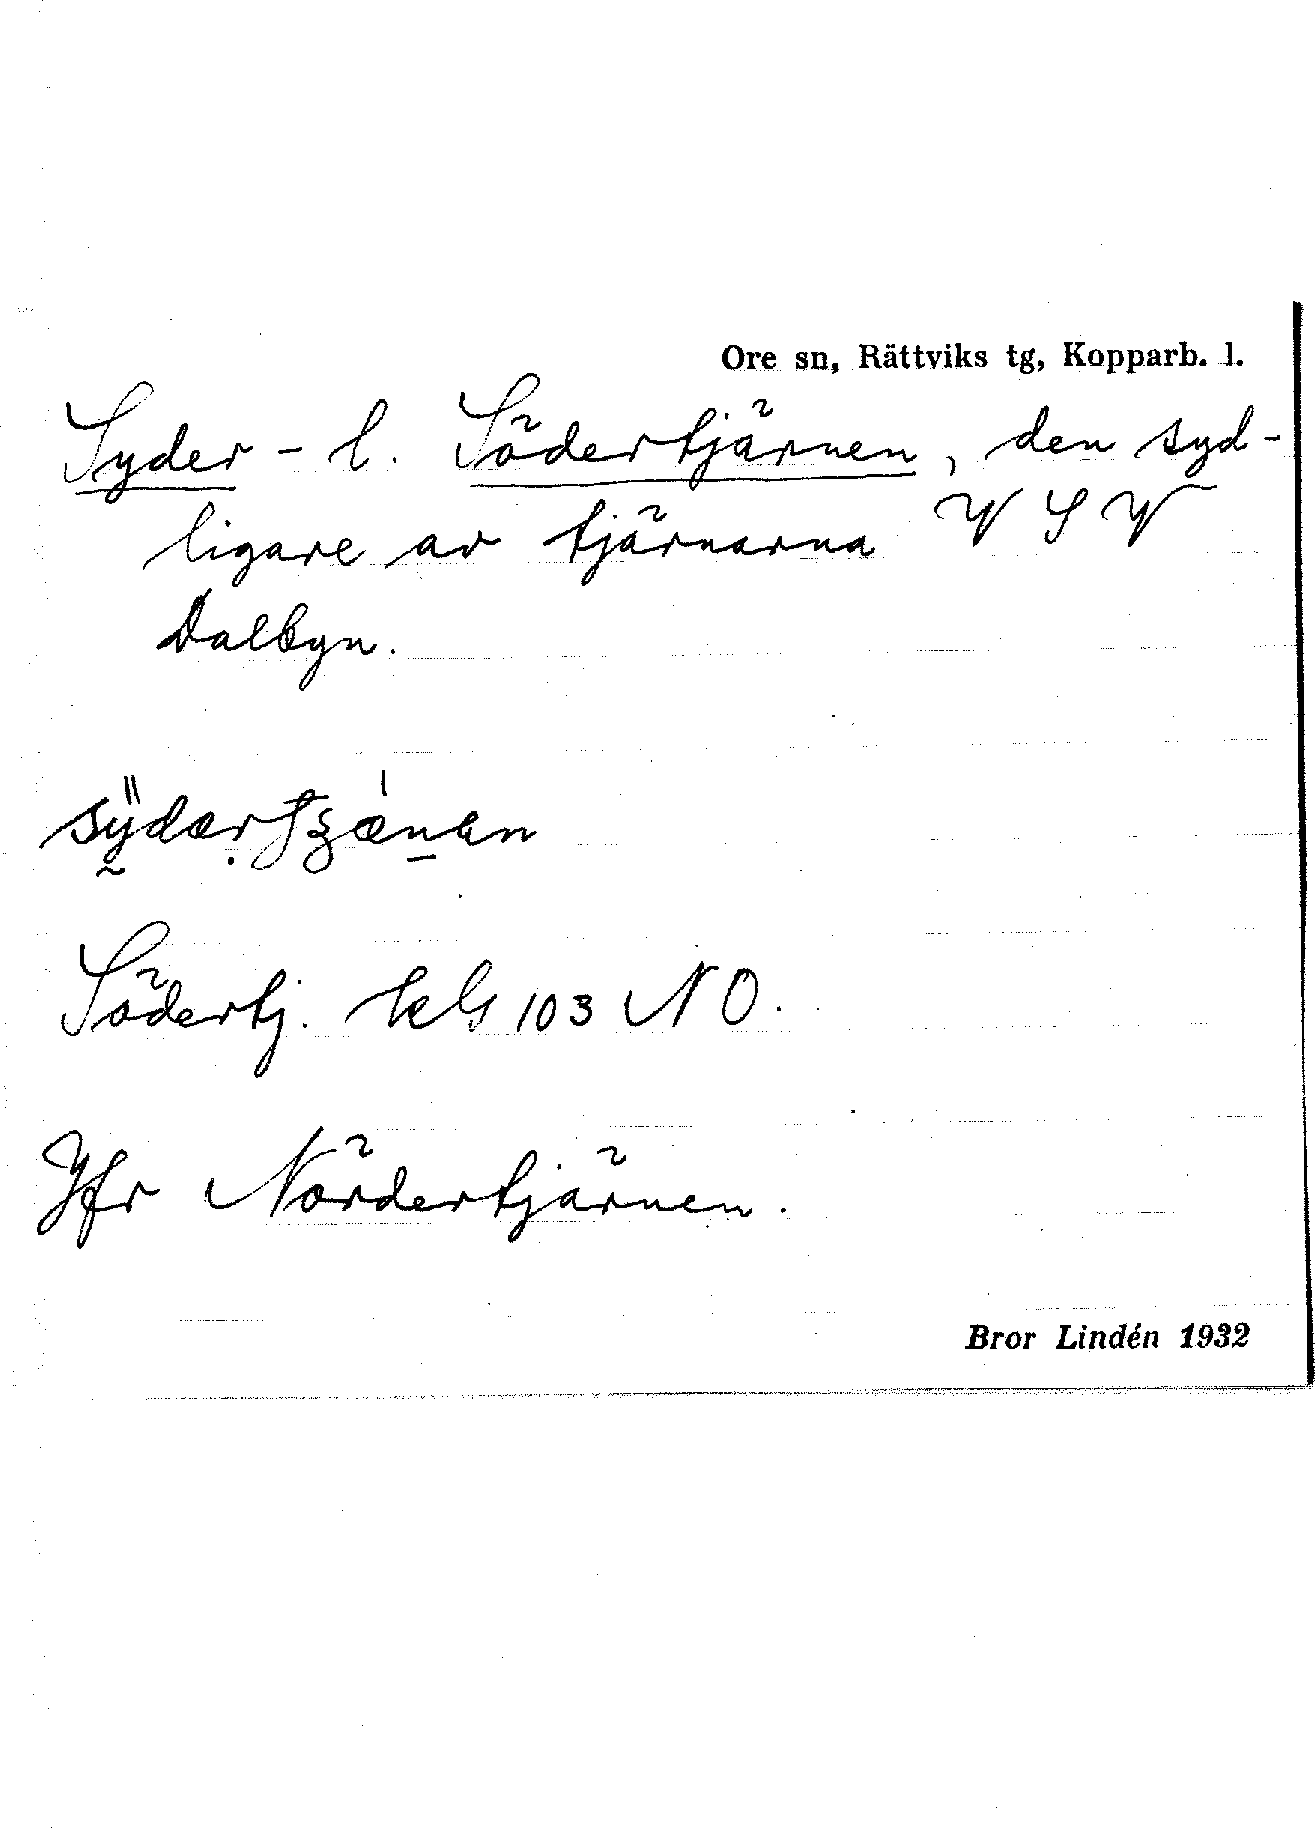 Ore sn, Rättviks tg, Kopparb. l.
Syder- l. Södertjärnen, den syd-
ligare av tjärnarna V S V
Dalbyn.
Södertj. 103 NO.
Jfr Nördertjärnen.
Bror Lindén 1932